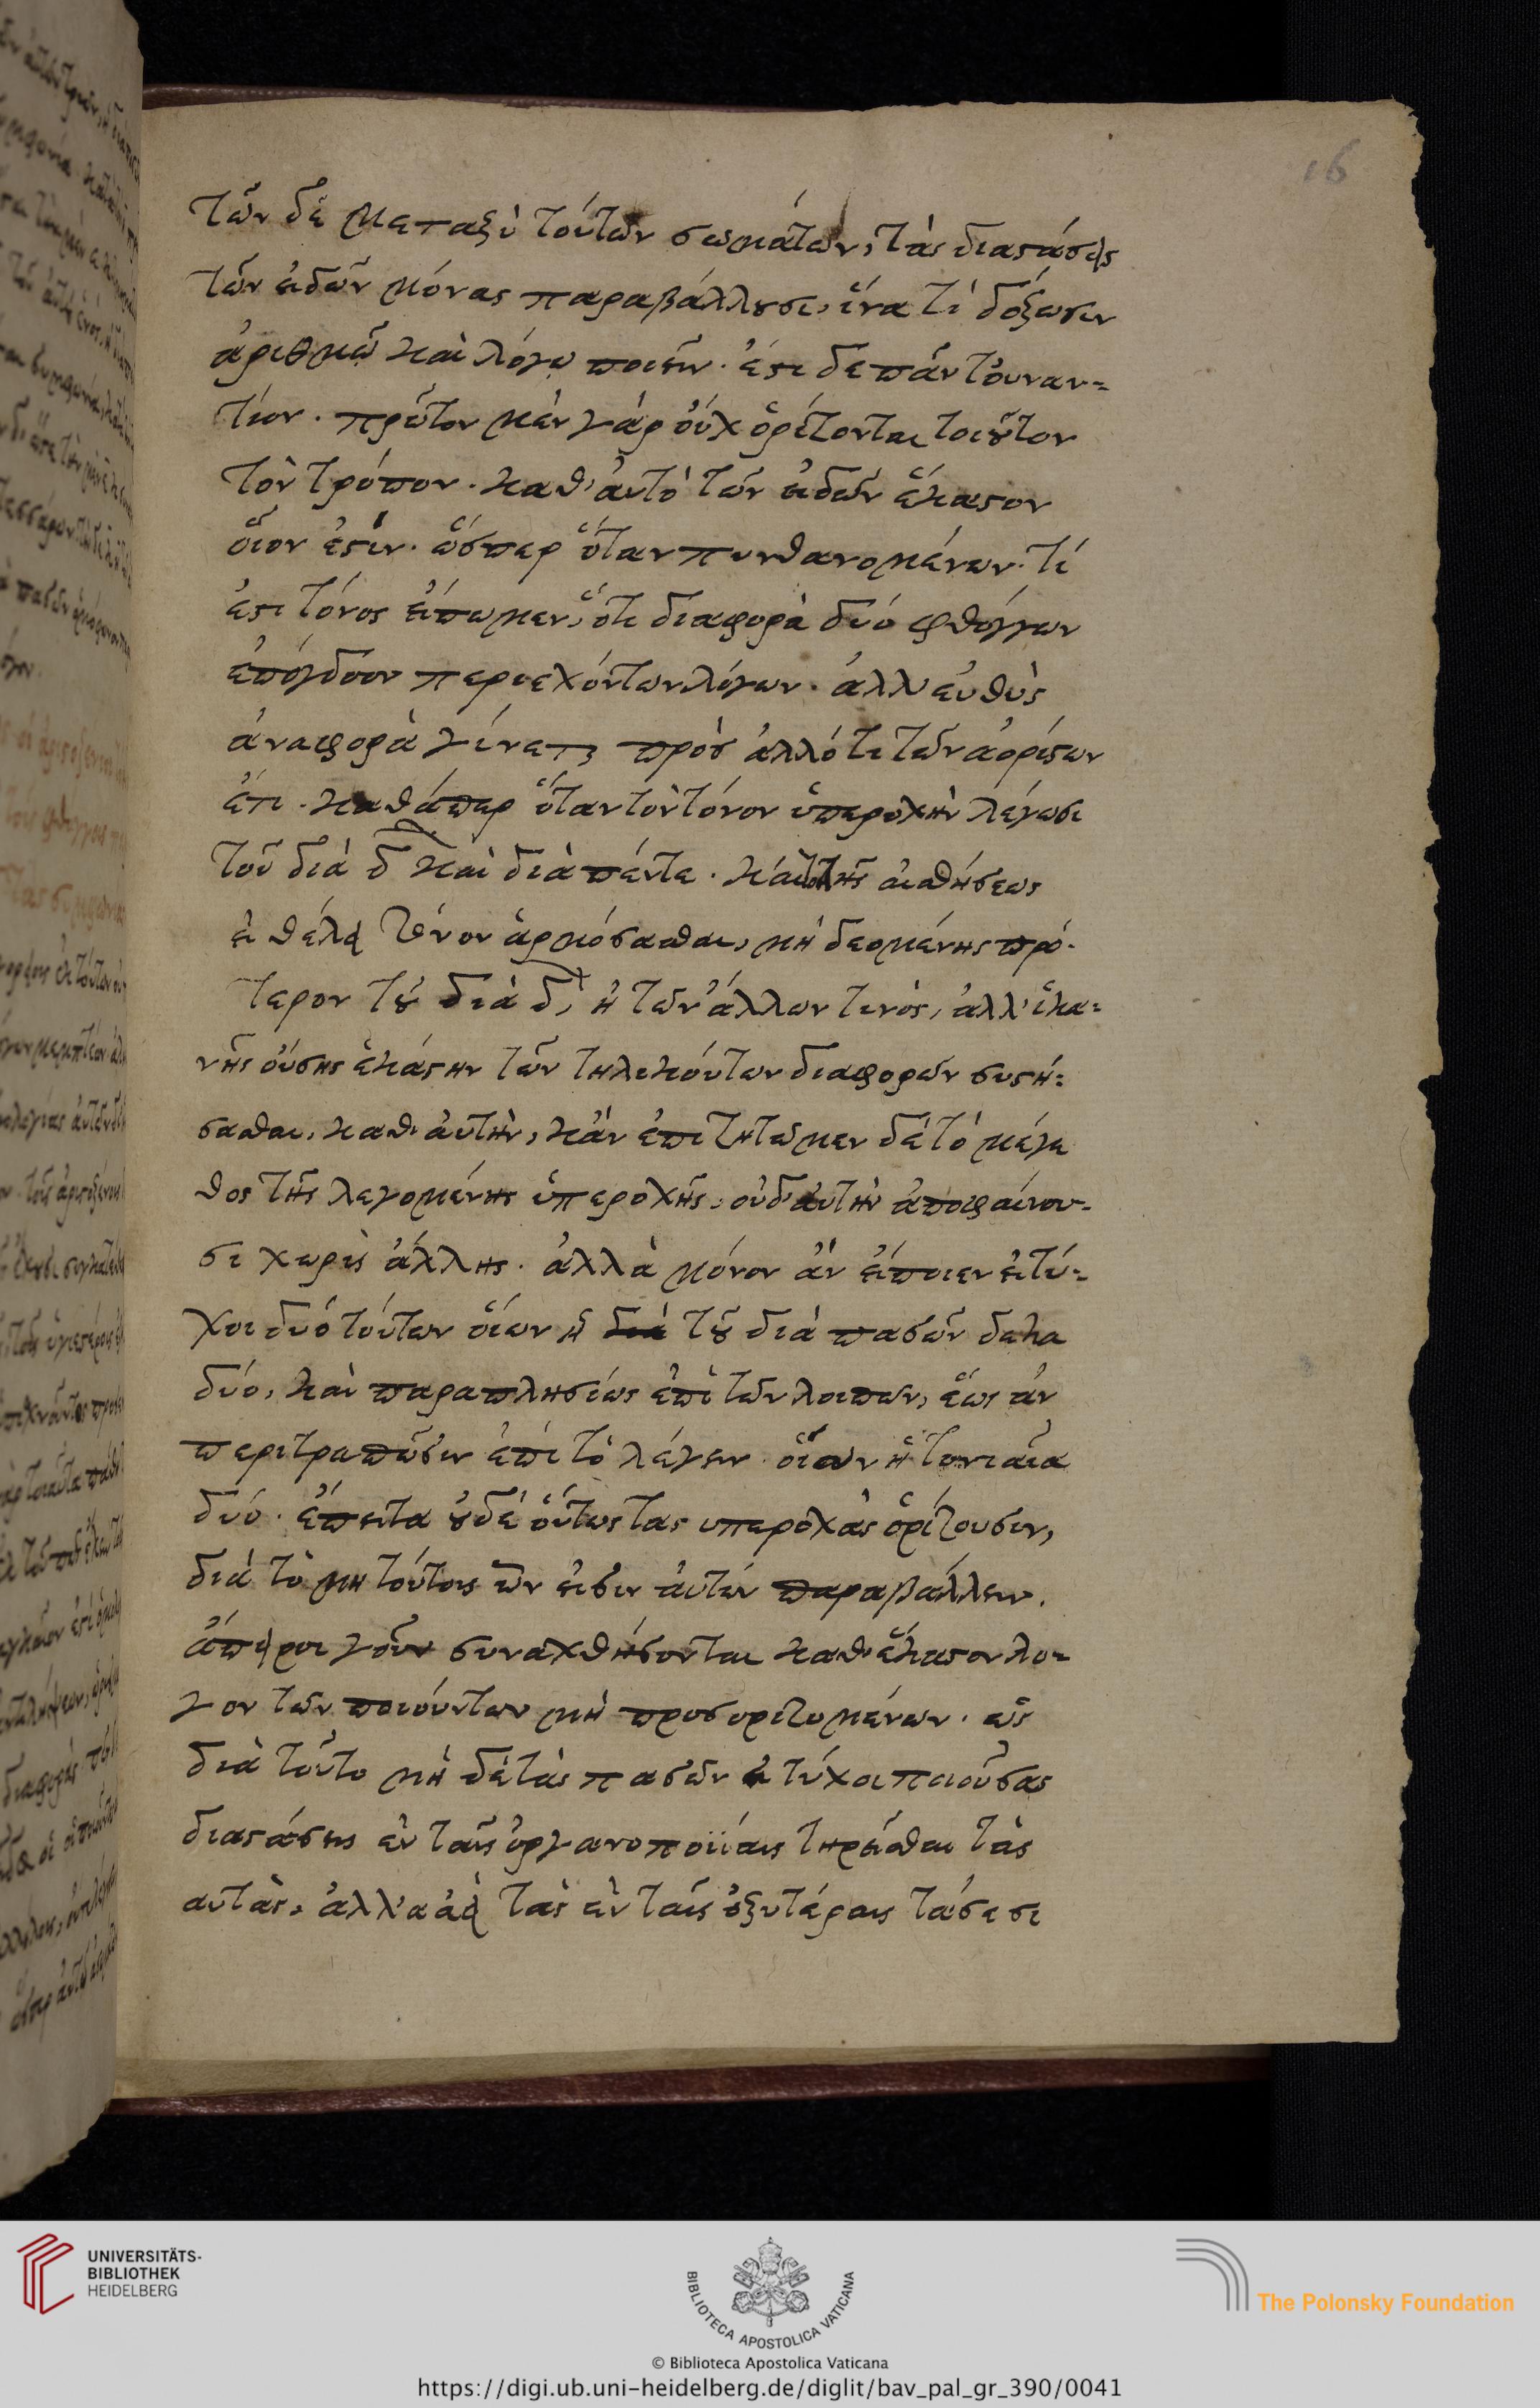 16
τῶν δὲ μεταξὺ τούτων σωμάτων, τὰς διαστάσεις
τῶν εἰδῶν μόνας παραβάλλουσι, ἵνα τὶ δόξωσιν
ἀριθμῶ καὶ λόγω ποιεῖν. ἔστι δε πᾶν τουναν-
τίον. πρῶτον μὲν γὰρ οὐχ ὁρίζονται τοιοῦτον
τὸν τρόπον. καθ' αὐτὸ τῶν εἰδῶν ἕκαστον
οἷόν ἐστιν. ὥσπερ ὅταν πυνθανομένων. τί
ἐστι τόνος εἴπωμεν, ὅτι διαφορὰ δύο φθόγγων
ἐπόγδοον περιεχόντων λόγων. ἀλλ' εὐθὺς
ἀναφορὰ γίνεται πρὸς ἀλλό τι τῶν ἀορίστων
ἔτι. καθάπερ ὅταν τὸν τόνον ὑπεροχὴν λέγωσι
τοῦ διὰ δ καὶ διὰ πέντε. αἰσθήσεως
εἰ θέλει τόνον ἁρμόσασθαι, μὴ δεομένης πρό-
τερον τοῦ διὰ δ, ἢ τῶν ἄλλων τινὸς, ἀλλ' ἱκα-
νῆς οὔσης ἑκάστην τῶν τηλικούτων διαφορῶν συστή-
σασθαι, καθ' αὑτὴν, κἂν ἐπιζητῶμεν δὲ τὸ μέγε
θος τῆς λεγομένης ὑπεροχῆς, οὐδ' αὐτὴν ἀποφαίνου-
σι χωρὶς ἄλλης. ἀλλὰ μόνον ἂν εἴποιεν εἰ τύ-
χοι δυό τούτων οἵων ἡ διὰ τοῦ διὰ πασῶν δεκα
δύο, καὶ παραπλησίως ἐπὶ τῶν λοιπῶν, ἕως ἂν
περιτραπῶσιν ἐπὶ τὸ λέγειν οἵων ἡ τονιαία
δύο. ἔπειτα οὐδὲ οὕτως τας υπεροχὰς ὁρίζουσιν,
διὰ τὸ μη τούτοις ὧν εἰσιν αὐτῶν παραβάλλειν.
ἄπειροι γοῦν συναχθήσονται καθ' ἕκαστον λο-
γον τῶν ποιούντων μὴ προσοριζομένων. ὡς
διὰ τοῦτο μὴ δὲ τὰς πασῶν εἰ τύχοι ποιούσας
διαστάσεις ἐν ταῖς ὀργανοποιΐαις τηρεῖσθαι τὰς
αυτὰς, ἀλλ' ἀεὶ τὰς ἐν ταῖς ὀξυτέραις τάσεσι
UNIVERSITÄTS-
BIBLIOTHEK
HEIDELBERG
BIBLIOTECA APOSTOLICA VATICANA
The Polonsky Foundation
© Biblioteca Apostolica Vaticana
https://digi.ub.uni-heidelberg.de/diglit/bav_pal_gr_390/0041